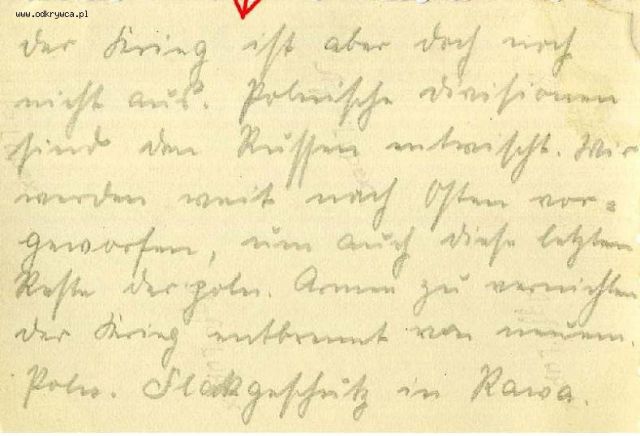 www.odkrywca.pl
der Krieg ist aber doch noch
nicht aus. Polnische Divisionen
sind den Russen entwischt. Wir
werden weit nach Osten vor=
geworfen, um auch diese letzten
Reste der poln. Armee zu vernichten
der Krieg entbrennt von neuem.
Poln. Flakgeschütz in Rawa.